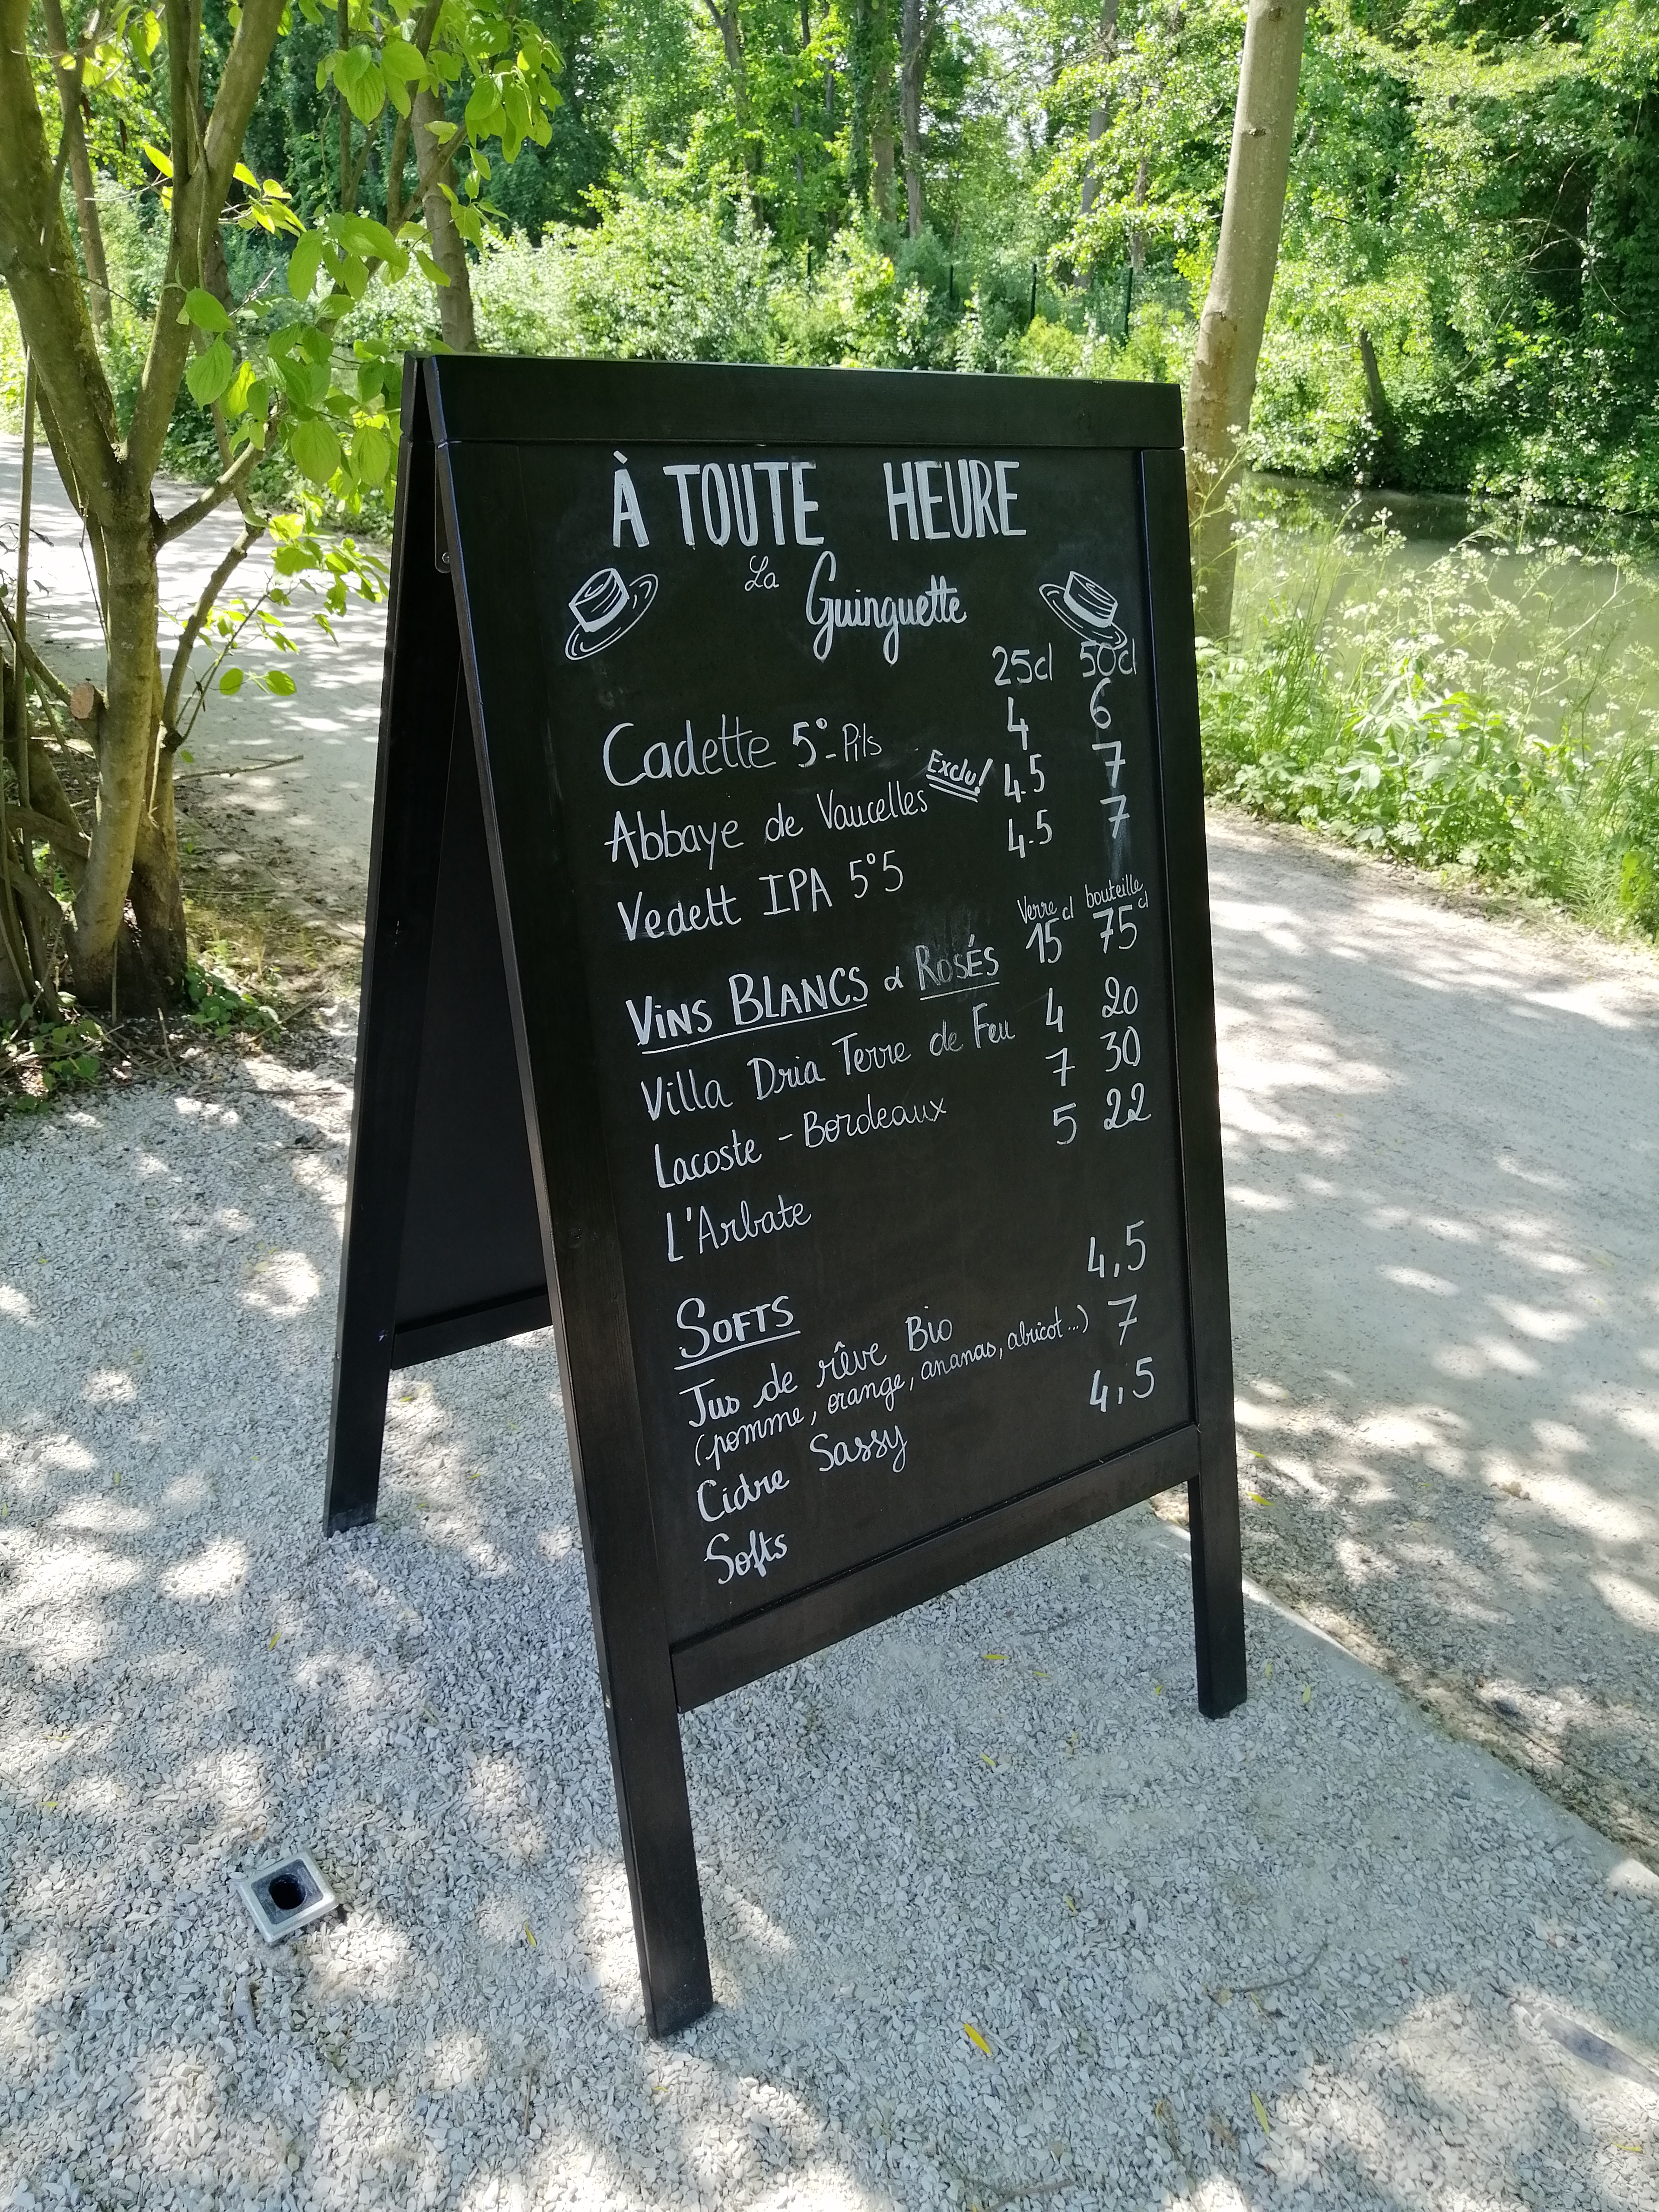 À TOUTE HEURE
La Guinguette
25cl 50cl
Cadette 5°-Pils 4 6
Abbaye de Vaucelles Exclu! 4.5 7
Vedett IPA 5°5 4.5 7
Verre bouteille
VINS BLANCS & ROSÉS 15 cl 75 cl
Villa Dria Terre de Feu 4 20
Lacoste - Bordeaux 7 30
L'Arbate 5 22
SOFTS
Jus de rêve Bio 4,5
(pomme, orange, ananas, abricot...)
Cidre Sassy 7
Softs 4,5